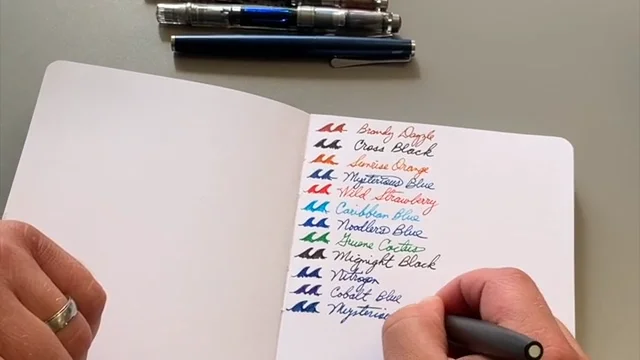 Brandy Dazzle
Cross Black
Sunrise Orange
Mysterious Blue
Wild Strawberry
Caribbean Blue
Noodlers Blue
Gruene Cactus
Midnight Black
Nitrogen
Cobalt Blue
Mysterio